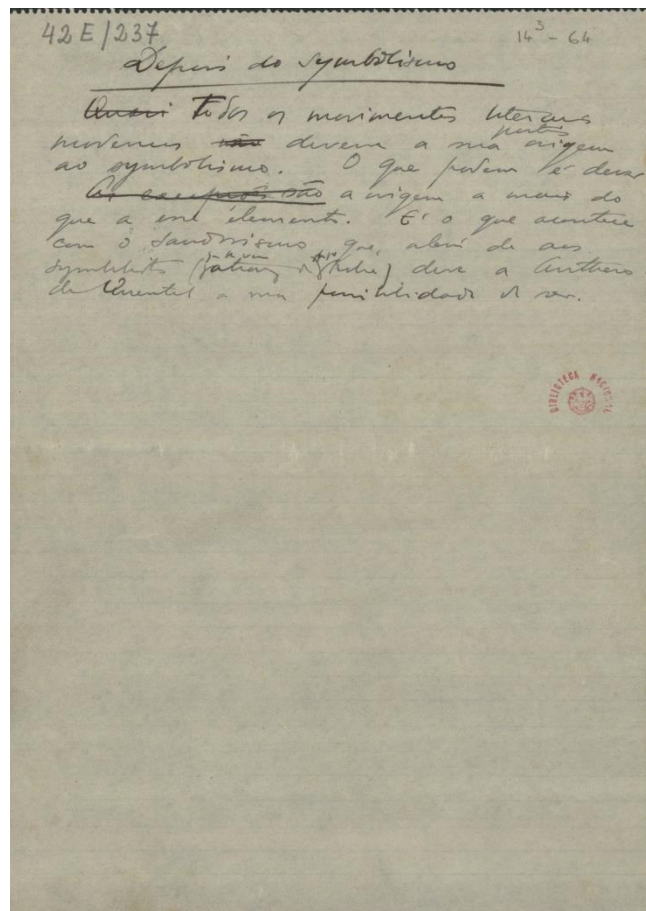 42 E/237
14³ - 64
Depois do symbolismo
Quasi Todos os movimentos literarios
modernos não devem a sua origem
ao symbolismo. O que podem é dever
As excepções são a origem a mais do
que a esse elemento. É o que acontece
com o saudosismo que, além de aos
symbolistas deve a Anthero
de Quental a sua possibilidade de ser.
BIBLIOTECA NACIONAL